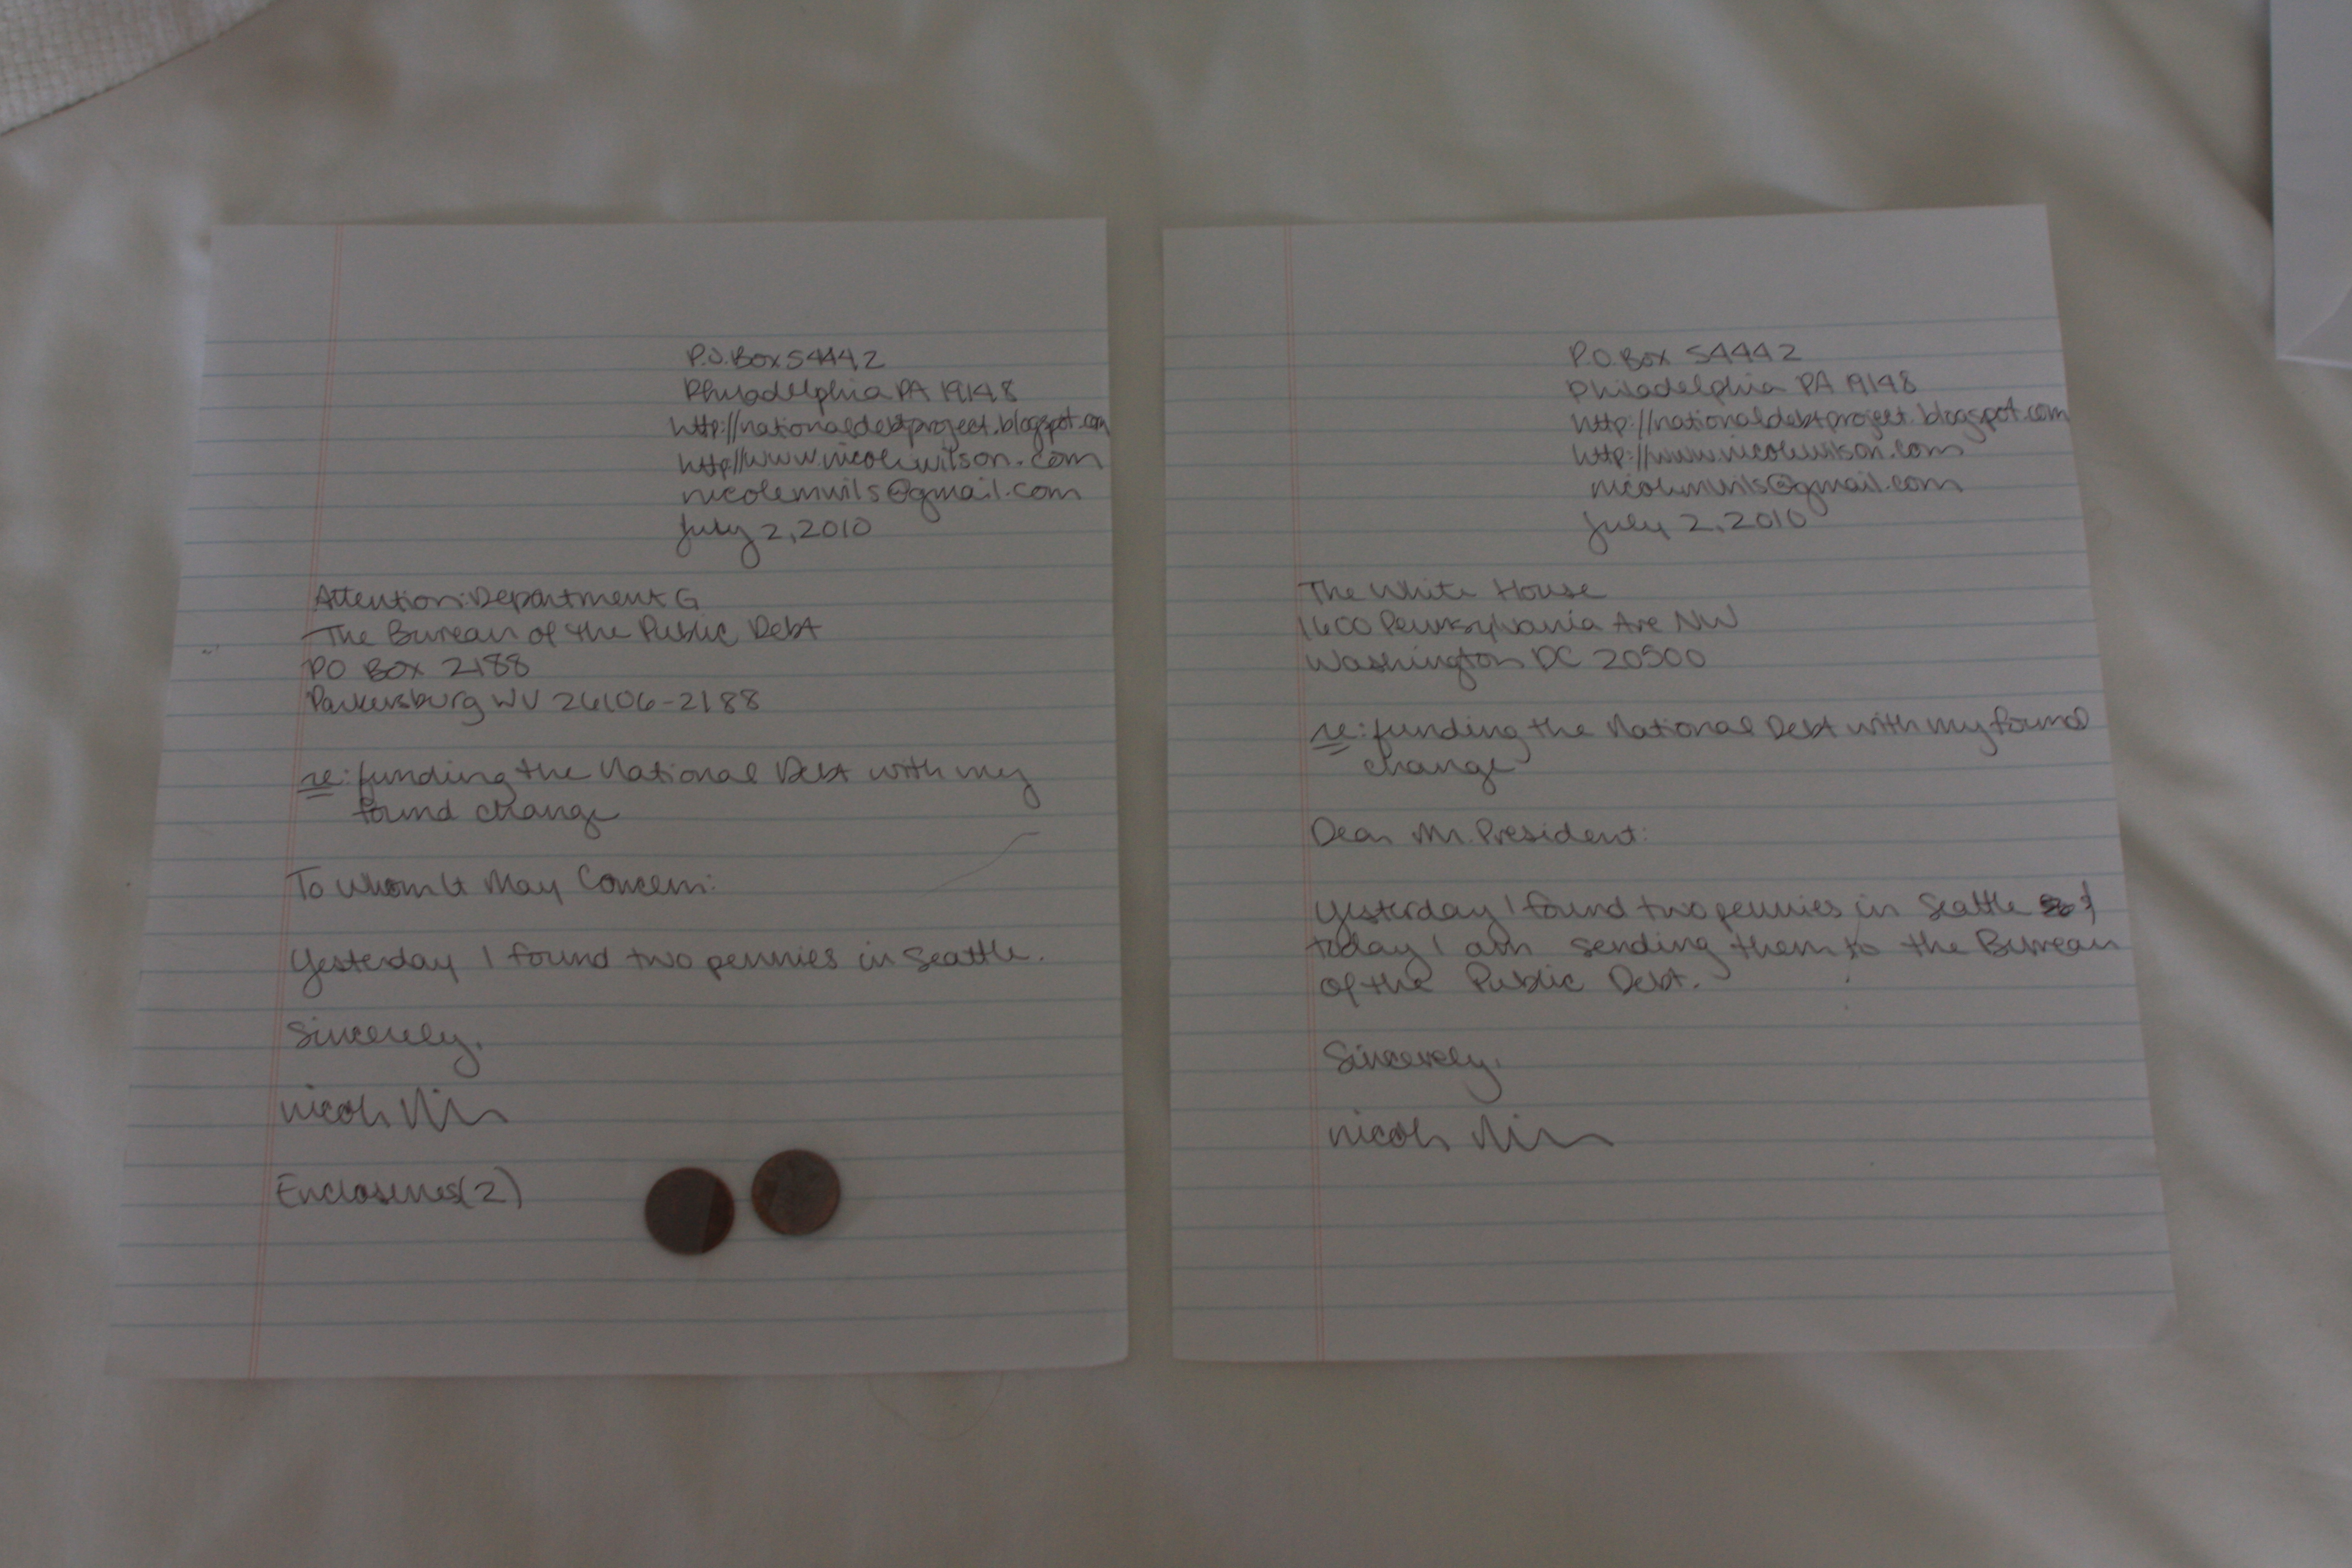 P.O. Box 54442
Philadelphia PA 19148
http://nationaldebtproject.blogspot.com
http://www.nicolewilson.com
nicolemwils@gmail.com
July 2, 2010
Attention: Department G
The Bureau of the Public Debt
PO Box 2188
Parkersburg WV 26106-2188
re: funding the National Debt with my
found change
To Whom It May Concern:
Yesterday I found two pennies in Seattle.
Sincerely,
Nicole
Enclosures (2)
P.O. Box 54442
Philadelphia PA 19148
http://nationaldebtproject.blogspot.com
http://www.nicolewilson.com
nicolemwils@gmail.com
July 2, 2010
The White House
1600 Pennsylvania Ave NW
Washington DC 20500
re: funding the National Debt with my found
change
Dear Mr. President:
Yesterday I found two pennies in Seattle &
today I am sending them to the Bureau
of the Public Debt.
Sincerely,
Nicole